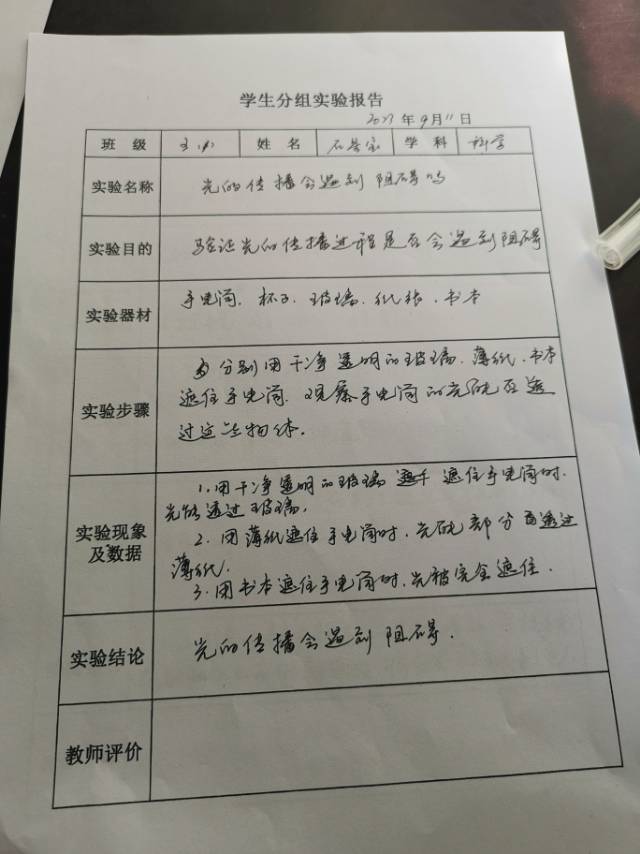 学生分组实验报告
年9月11日
班 级 姓 名 石 学 科 科学
实验名称 光的传播会遇到阻碍吗
实验目的 验证光的传播过程是否会遇到阻碍
实验器材 手电筒、杯子、玻璃、纸张、书本
分别用干净透明的玻璃、薄纸、书本
实验步骤 遮住手电筒、观察手电筒的光能否透
过这些物体.
1.用干净透明的玻璃 遮住手电筒时.
光能透过玻璃.
实验现象 2.用薄纸遮住手电筒时,光能部分透过
及数据 薄纸.
3.用书本遮住手电筒时.光被完全遮住.
实验结论 光的传播会遇到阻碍.
教师评价